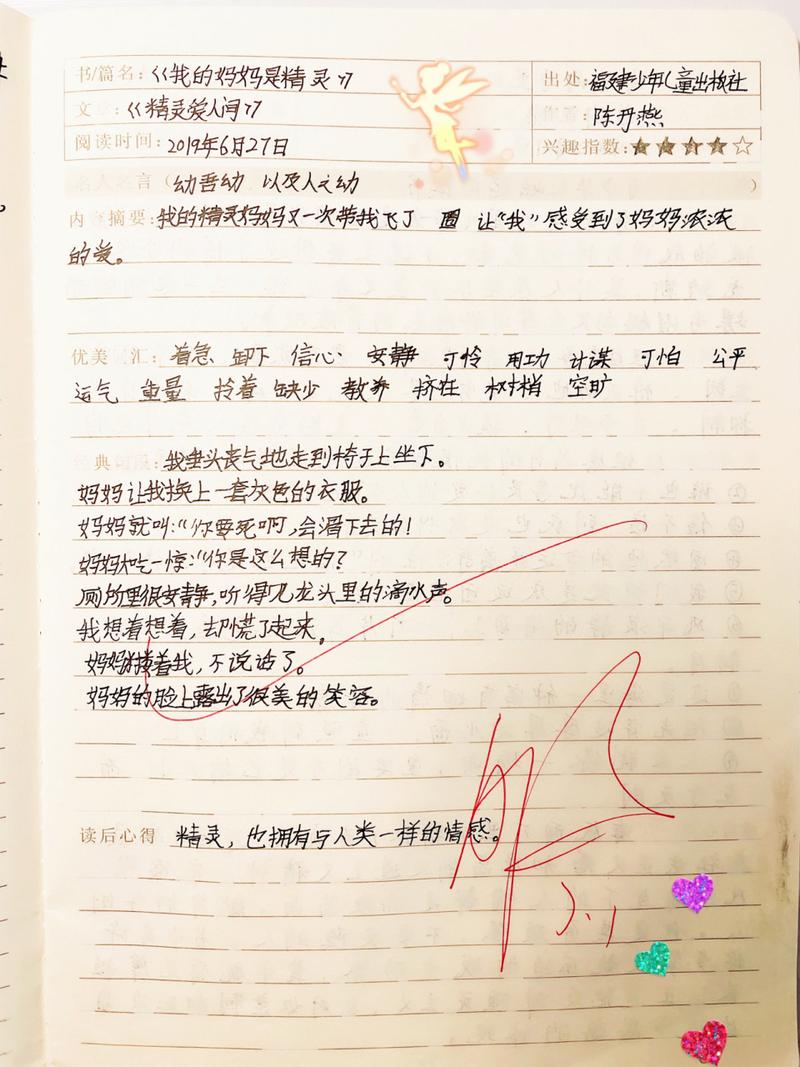 书/篇名：《我的妈妈是精灵》 出处：福建少年儿童出版社
文章：《精灵爱人间》 陈丹燕
阅读时间：2019年6月27日 兴趣指数：★★★★☆
名人名言（幼吾幼 以及人之幼）
内容摘要：我的精灵妈妈又一次带我飞了 圈 让“我”感受到了妈妈浓浓
的爱。
优美 汇：着急 卸下 信心 安静 可怜 用功 计谋 可怕 公平
运气 重量 拎着 缺少 教养 挤在 树梢 空旷
经典句段：我垂头丧气地走到椅子上坐下。
妈妈让我换上一套灰色的衣服。
妈妈就叫：“你要死啊，会滑下去的！
妈妈大吃一惊：“你是这么想的？
厕所里很安静，听得见龙头里的滴水声。
我想着想着，却慌了起来。
妈妈搂着我，不说话了。
妈妈的脸上露出了很美的笑容。
读后心得 精灵，也拥有与人类一样的情感。